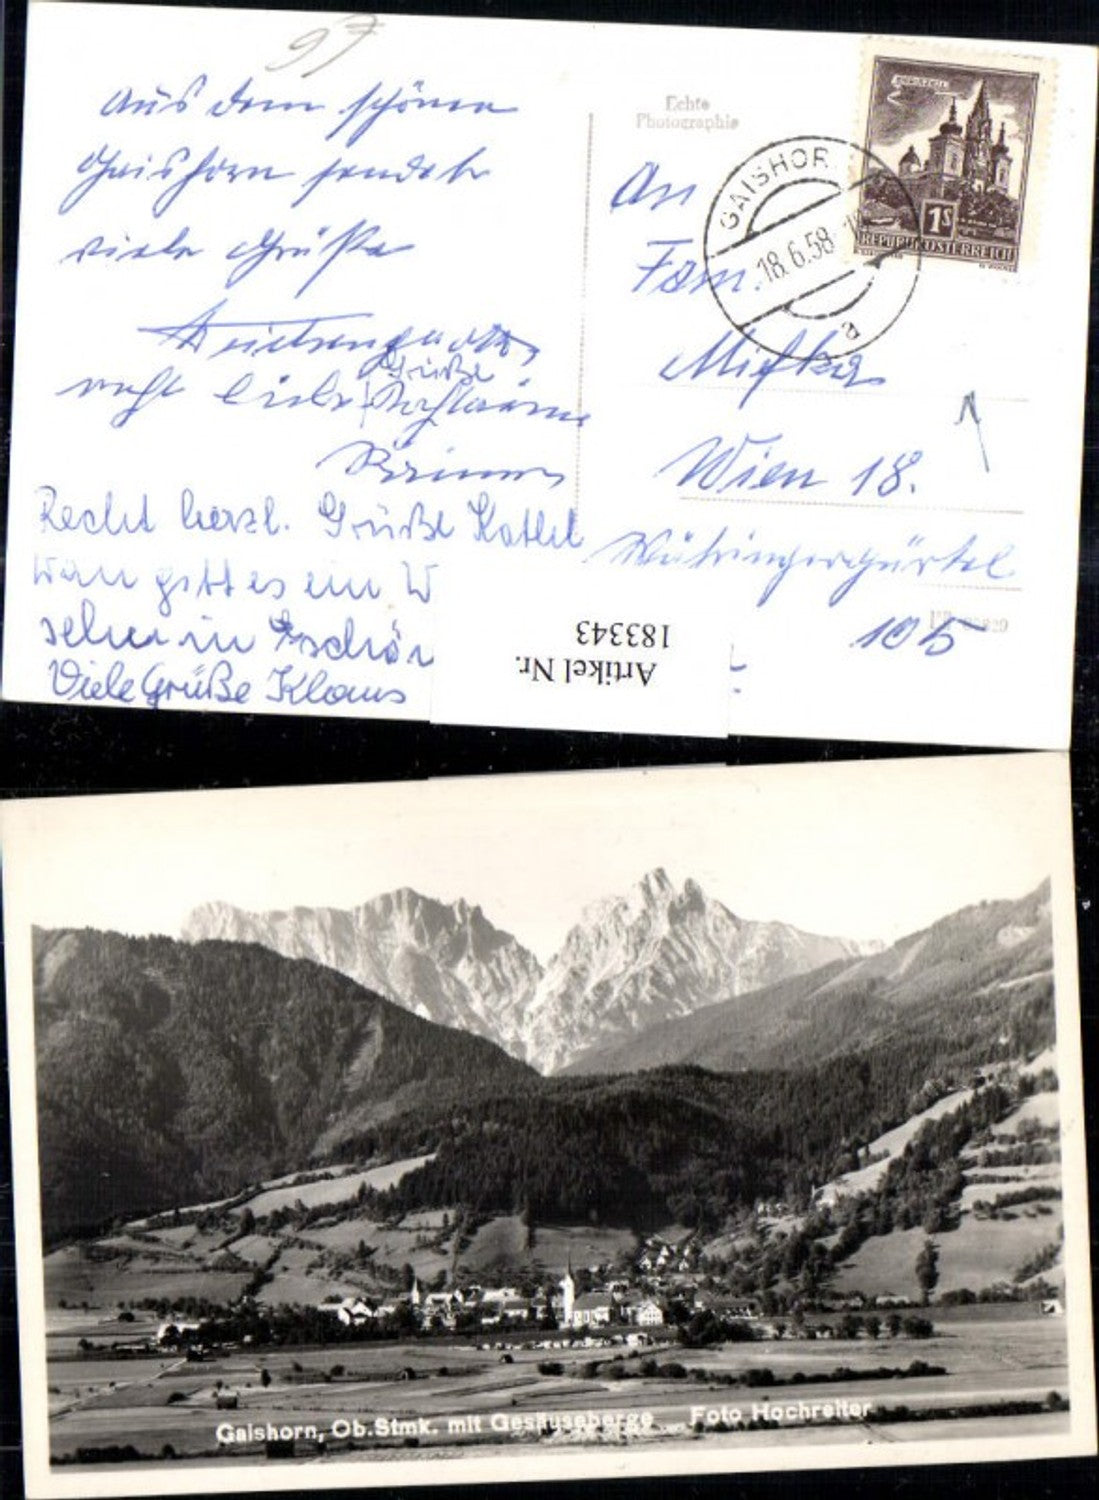 97
Aus dem schönen
Gaishorn sendet
viele Grüße
Grüße
recht liebe
Recht herzl. Grüße
Wann gibt es ein W
sehen in
Viele Grüße Klaus
Echte
Photographie
An
Fam.
Wien 18.
Währingergürtel
105
GAISHOR
18.6.58
a
MARIAZELL
1S
REPUBLIK ÖSTERREICH
Artikel Nr.
183343
Gaishorn, Ob.Stmk. mit Gesäuseberge Foto Hochreiter